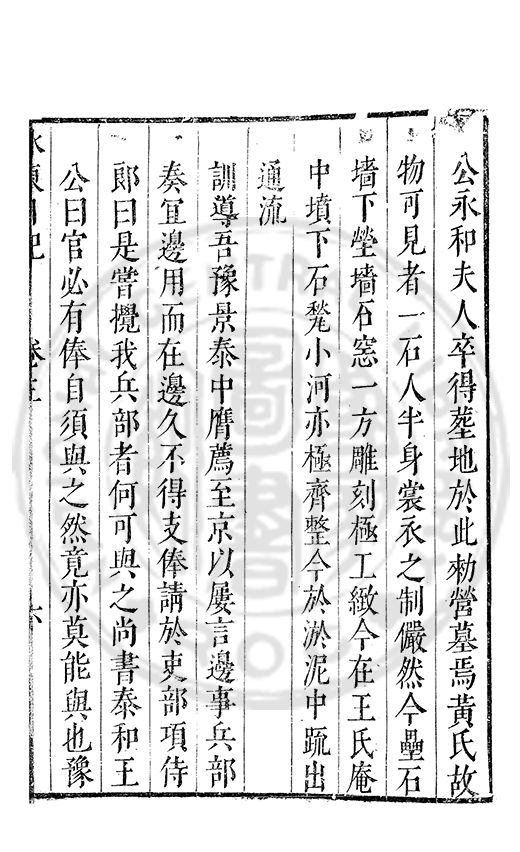 公永和夫人卒得塟地於此勑營墓焉黃氏故
物可見者一石人半身裳衣之制儼然今壘石
墻下塋墻石窓一方雕刻極工緻今在王氏庵
中墳下石甃小河亦極齊整今於淤泥中䟽出
通流
訓導吾豫景泰中膺薦至京以屢言邊事兵部
奏冝邊用而在邊久不得支俸請於吏部項侍
郎曰是嘗攪我兵部者何可與之尚書泰和王
公曰官必有俸自須與之然竟亦莫能與也豫
水東日記
卷三
六